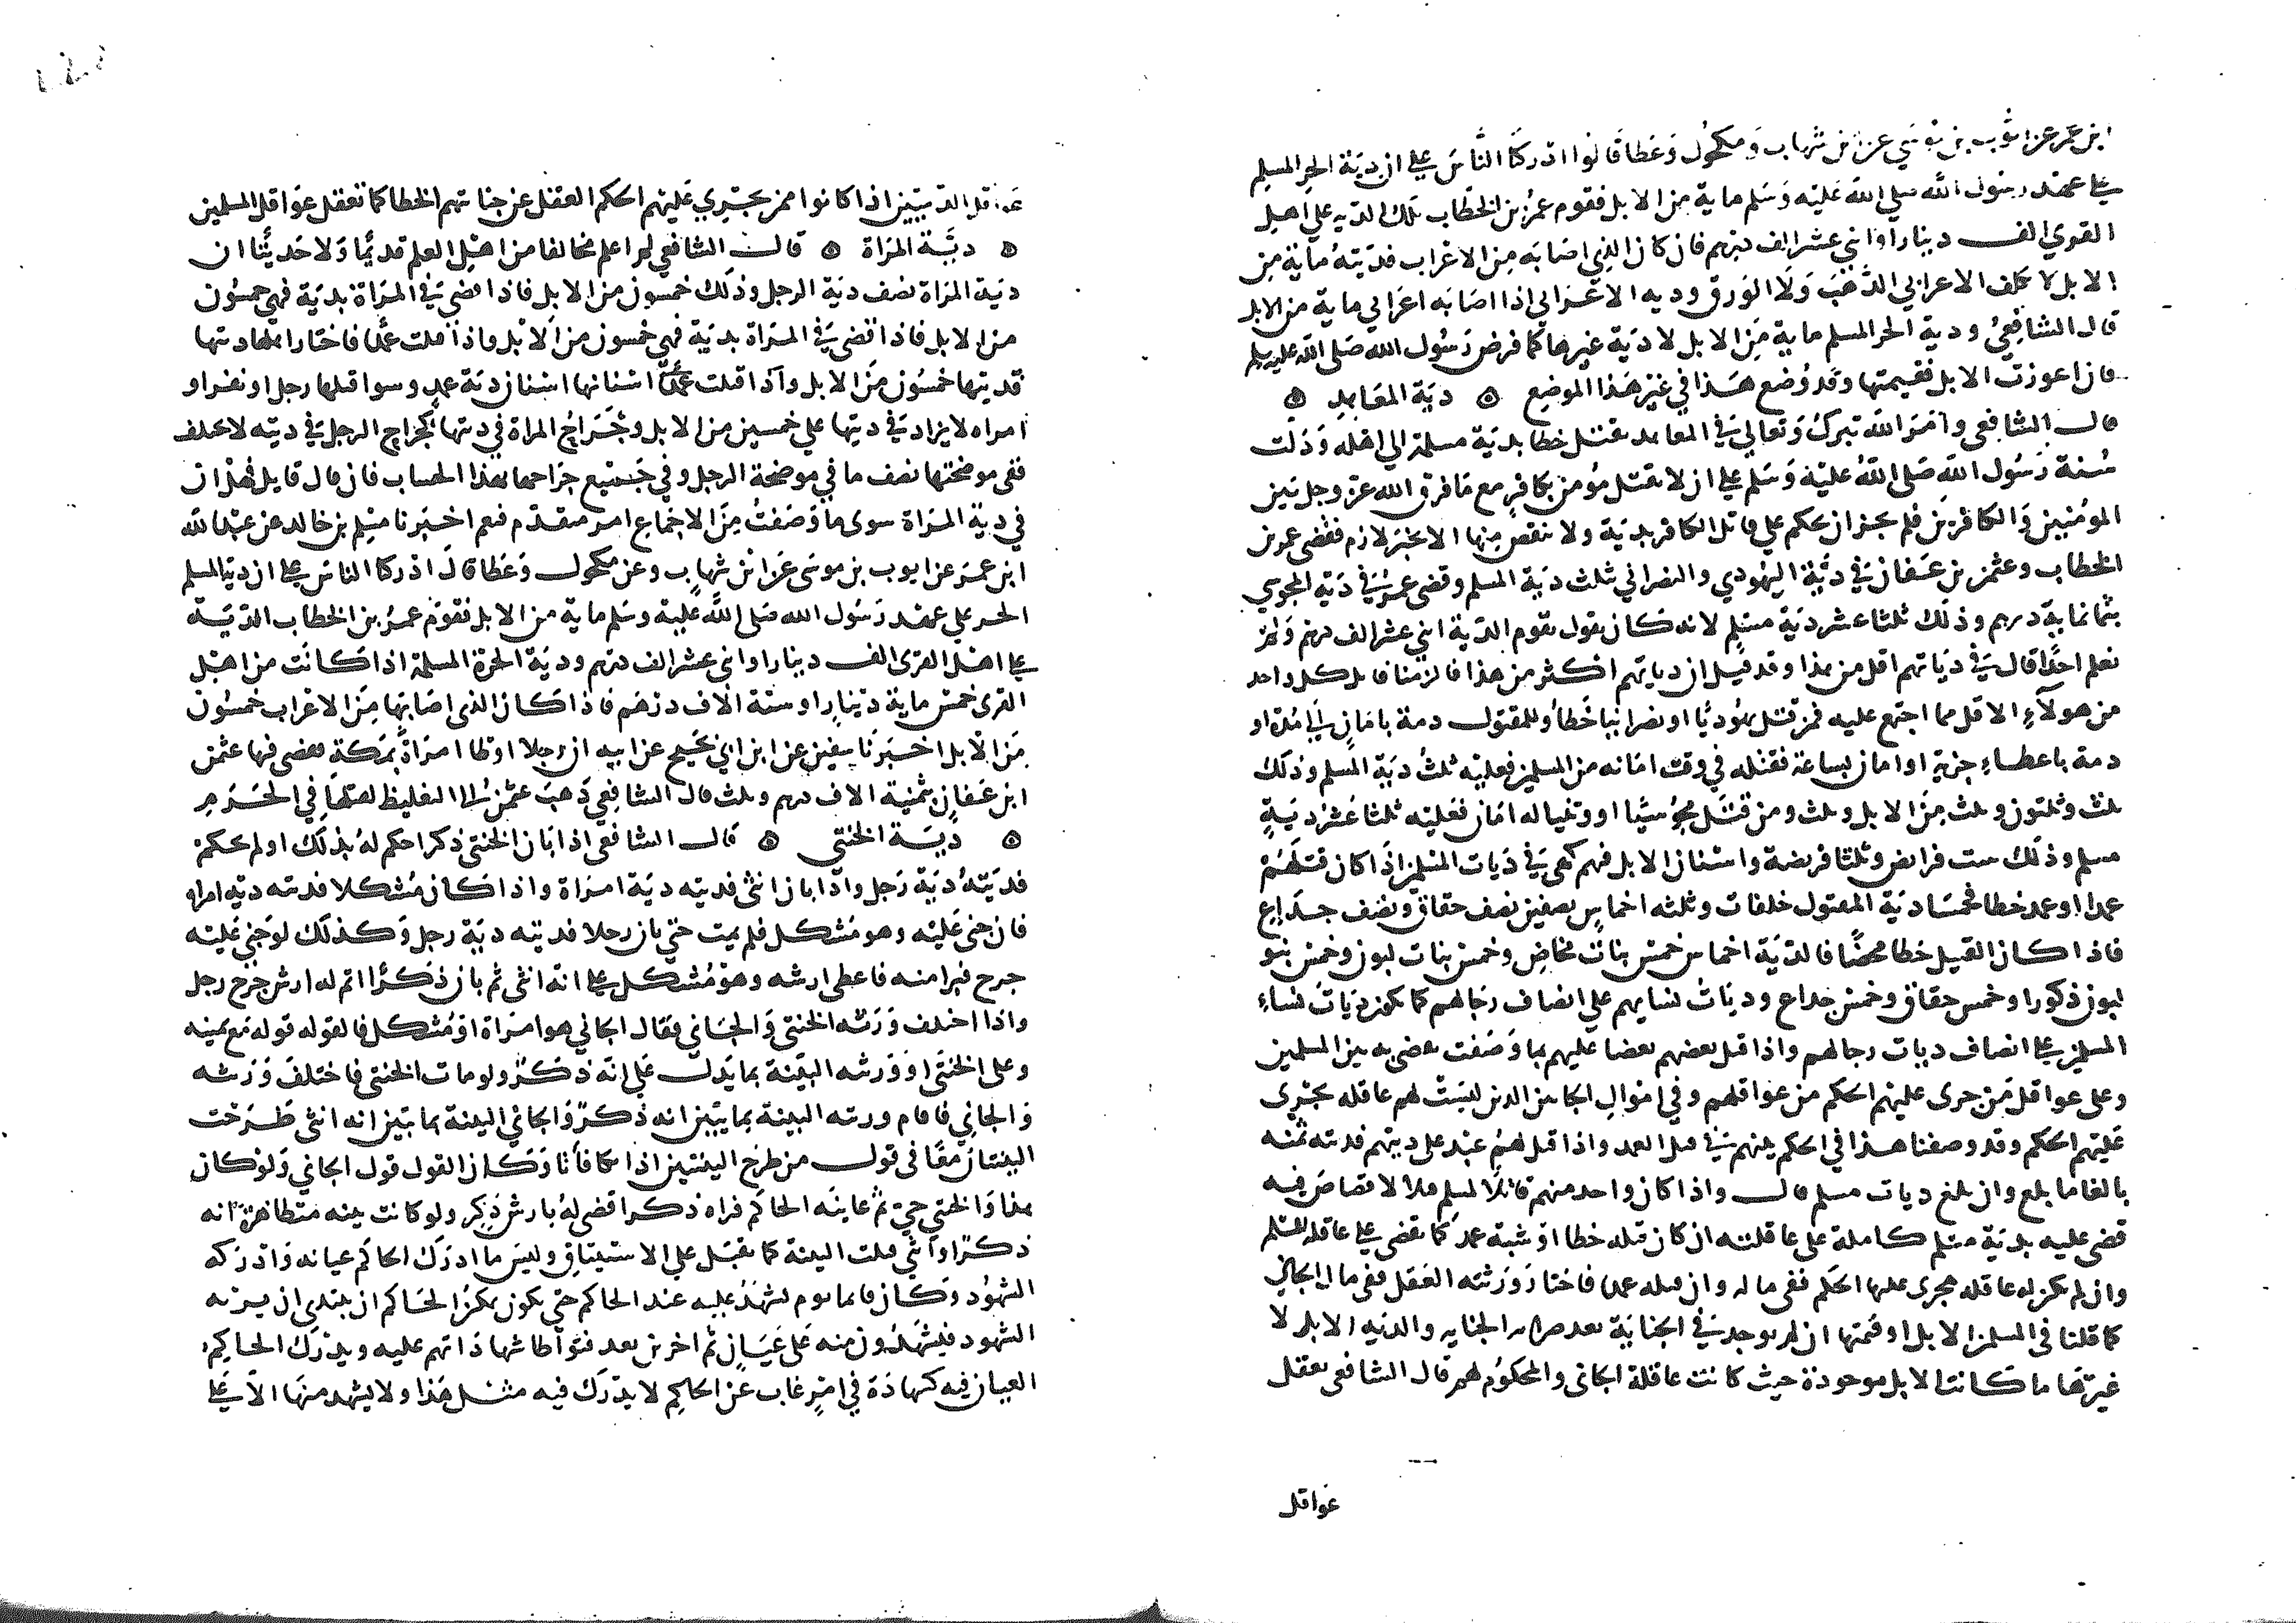 ابن عمر عن ايوب بن موسي عن ابن شهاب وَمكحُول وَعَطا قالوا ادركنا النَّاسَ علي ان دِيَة الحر المسلم
علي عهد رسُول الله صلي الله عَليْه وَسَلم ماية من الابل فقوم عمرُ بن الخطاب تلك الديه علي اهل
القري الف دينار او اثني عشر الف درهم فان كان الذي اصَابَه مِن الاعراب فديتهُ ماية مِن
الابل لا يكلف الاعرابي الذَّهَبَ وَلَا الوَرق وديه الاعرابي اذا اصَابَه اعرابي ماية من الابل
قال الشافِعيُ ودية الحر المسلم ماية مِن الابل لا دية غيرها كما فرض رَسُول الله صَلي الله عليه وسلم
فان اعوزت الابل فقيمتها وقد وُضع هَذا في غير هَذا الموضِع ۞ ديَة المعَاهدِ ۞
قال الشافعي وامَرَ اللهَ تبركَ وَتعالي في المعاهد يقتل خطا بديَة مسلمة الي اهله وَدَلت
سُنة رَسُول الله صَلي اللهُ عليْه وَسَلم علي ان لا يقتل مؤمن بكافرٍ مع مَا فرق الله عز وجل بَين
المومنين وَالكافرين فلم يجز ان يحكم علي قاتل الكافر بديَة ولا ينقص مِنها الا بخبر لازم فقضي عمر بن
الخطاب وعثمن بن عَفان في ديَة اليهُودي والنصراني ثلث ديَة المسلم وقضي عمرُ في دَية المجوسي
بثمانماية درهم وذلك ثلثا عشر ديَة مسلِم لانه كَان يقول تقوم الدّية اثني عشر الف درهم وَلم
نعلم احدًا قال في دَياتهم اقل من هذا وقد قيل ان دياتهم اكثر من هذا فالزمنا قاتل كل واحد
من هولآءِ الاقل مما اجتمع عليه فمن قتل يهُوديًا او نصرانيا خطأ وللمقتول ذمة بامَانٍ الي مُدة او
ذمة باعطاءِ جزية او امان بساعة فقتله في وقت امَانه من المسلمين فعليْه ثلثُ ديَة المسلم وذلك
ثلث وثلثون وثلث مِنَ الابل وثلث ومن قتل مجوُسيًّا او وثنيا له امَان فعليْه ثلثا عُشرُ ديَةِ
مسلم وذلك ست فرايض وثلثا فريضة واسنان الابل فيهم كهي في دَيات المسْلمين اذَا كان قتلَهُمْ
عمدا او عمد خطا فخمسَا ديَة المقتول خلفات وثلثه اخماسٍ نصفين نصف حقاق ونصف جذاع
فاذا كان القتيل خطا محضًا فالديَة اخماس خمسْ بنات مخاضٍ وخمسْ بنات لبون وخمسْ بنو
لبون ذكورا وخمس حقاق وخمسْ جذاع وديَاتُ نسايهم علي انصاف رجالهم كما تكون ديَاتُ نساءِ
المسلمين علي انصاف ديات رجالهم واذا قتل بعضهم بعضا عليهم بما وَصَفت يقضي به بين المسلمين
وعلي عواقل مَن جري عليْهم الحكم من عواقلهم وفي اموَالِ الجانين الذين ليسَتْ لهم عاقله يجري
عَليْهم الحكم وقد وصفنا هذا في الحكم بينهم في قتل العمد واذا قتل لهمُ عبد علي دينهم فديته ثمنه
بالغا ما بلغ وان بلغ ديات مسلم قال واذا كان واحد منهم قاتلًا لمسلِم قتلا لا قصاصَ فيه
قضي عليه بديَة مسلم كاملة علي عاقلته ان كان قتله خطا او شبة عمد كما يقضي علي عاقلة المسلم
وان لم يكن له عاقله يجري عليها الحكم ففي ماله وان قتله عمدا فاختارَ وَرَثته العَقل ففي مال الجاني
كما قلنا في المسلمين الابل او قيمتها ان لم توجد في الجناية بعد الجنايه والديه الابل لا
غيرَها ما كَانت الابل موجودة حيث كانت عاقلة الجاني والمحكوُم لهم قال الشافعي تعقل
عَواقل
عَواقل الذميّين اذا كانوا ممن يجْري عَليْهم الحكم العقل عن جناتهم الخطا كما تعقل عَواقل المسلمين
۞ ديَّة المرَاة ۞ قال الشافعي لم اعلم مخالفا من اهْل العلم قديمًا وَلا حَديثًا ان
ديَة المرَاة نصف ديَة الرجل وذلَك خمسون من الابل فاذا قضي في المرَاة بديَة فهي خمسُون
من الابل فاذا قضي في المرَاة بديَة فهي خمسون من الابْل واذا قتلت عمدًا فاختار اهلها ديتها
فديتها خمسُون مِنَ الابل وآذا قتلت عمدًا اسنانها اسنان ديَة عمدٍ وسوا قتلها رجل او نفر او
امراه لا يزاد في ديتها علي خمسين من الابل وَجَرَاحُ المراة في ديتها كجراح الرجل في ديته لا تختلف
ففي موضحتها نصف ما في موضحة الرجل وفي جَميْع جرَاحها بهذا الحساب فان قال قايل فهل في
في دية المرَاة سوي ما وَصَفتُ مِنَ الاجمَاع امر متقدم فنعم اخبَرنا مسْلِم بن خالد عن عبْد الله
ابن عمرَ عن ايوب بن موسَي عَن ابْن شهابٍ وعن مكحول وَعَطا قالَ ادركنا الناسَ علي ان ديَة المسلم
الحر علي عهد رَسُول الله صَلي اللهُ عليْه وسَلم ماية من الابل فقوَم عمرُ بن الخطاب الديَة
علي اهْل القرَي الف دينارا او اثني عشر الف درهم وديَة الحرة المسلمة اذا كانَت من اهْل
القري خمسْ ماية دينَار او ستة الاف درْهَم فاذا كَان الذي اصَابَها مِنَ الاعراب خمسُون
مَن الابل اخبَرَنا سفين عن ابن ابي نجيح عن ابيه ان رجلا اوطا امرَاةً بمكةِ فقضي فيها عثمن
ابن عَفانٍ بثمنيَة الاف درهم وثلث قال الشافِعي ذَهبَ عثمن الي التغليظ لقتلهَا في الحَرَمِ
۞ ديَة الخنثي ۞ قال الشافعي اذا بَان الخنثي ذكرا حكم لهُ بذلَك او لم يحكمْ
فديَتهُ ديَة رَجل واذا بان انثي فديته ديَة امرَاة واذا كَان مُشكلا فديته ديَة امراه
فان جني عَليْه وهو مُشكل فلم يمت حتي بان رجلا فديته ديَة رجل وَكذلَك لوَ جني عَليْه
جرح فبرا منه فاعطي ارشه وهوَ مُشكل علي انهَ انثي ثم بان ذَكرًا اتم له ارشَ جرح رجل
واذا اختلف وَرَثة الخنثي وَالجَاني فقال الجاني هو امرَاة اوْ مُشكل فالقوله قوله مع يمينه
وعلي الخنثَي او وَرَثه البيّنة بما يَدل عَلي انهَ ذكرٌ ولو مات الخنثي فاختلفَ وَرَثته
وَالجاني فاقام ورثته البينة بما يبَين انه ذكرٌ وَالجاني البينة بما تبَين انه انثي طَرَحْت
البينتان مَعًا في قول من طرح البينتين اذا تكافأتا وَكَان القول قول الجاني وَلوْ كان
هذا وَالخنثي حيّ ثمّ عاينه الحاكم فراه ذكرا قضي لهُ بارش ذكر ولو كانت بينه متظاهرة انه
ذكرًا وَانثي قبلت البينة كما تقبَل علي الاستيثاق وليسَ ما ادرَك الحاكم عيانه وَادرَكه
الشهُود وَكَان قايما يوم يشهَد عليه عند الحاكم حتي يكون يمكنُ الحَاكم ان يبتدي ان يريه
الشهود فيشهَدُون منه عَلي عَيَان ثم اخرين بعد فتوَاطا شهاداتهم عليه ويدرَك الحاكم
العيان فيه كشهادَة في امرٍ غاب عن الحاكِم لا يدرَك فيه مثل هَذا ولا يشهد منهَا الا علي